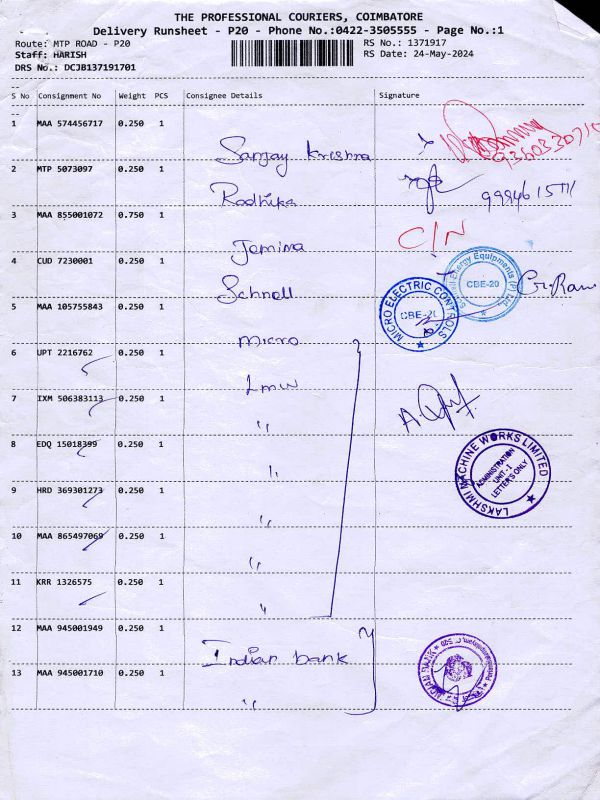 THE PROFESSIONAL COURIERS, COIMBATORE
Delivery Runsheet - P20 - Phone No.:0422-3505555 - Page No.:1
Route: MTP ROAD - P20
RS No.: 1371917
Staff: HARISH
RS Date: 24-May-2024
DRS No.: DCJB137191701
S No Consignment No Weight PCS Consignee Details Signature
1 MAA 574456717 0.250 1
Sanjay Krishna
2 MTP 5073097 0.250 1
Radhika
3 MAA 855001072 0.750 1
C/N
Jemima
4 CUD 7230001 0.250 1
Schnell
Energy Equipments (P) Ltd.
CBE-20
5 MAA 105755843 0.250 1
Micro
MICRO ELECTRIC CONTROLS
CBE-20
6 UPT 2216762 0.250 1
Lmw
7 IXM 506383113 0.250 1
"
8 EDQ 15018399 0.250 1
"
LAKSHMI MACHINE WORKS LIMITED
ADMINISTRATION
UNIT-1
LETTERS ONLY
9 HRD 369301273 0.250 1
"
10 MAA 865497069 0.250 1
"
11 KRR 1326575 0.250 1
"
12 MAA 945001949 0.250 1
Indian bank
INDIAN BANK
13 MAA 945001710 0.250 1
"